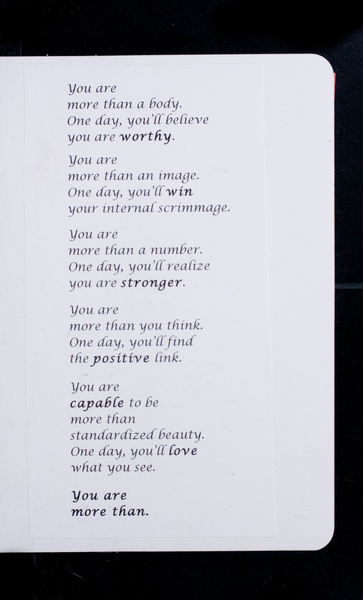 You are
more than a body.
One day, you'll believe
you are worthy.
You are
more than an image.
One day, you'll win
your internal scrimmage.
You are
more than a number.
One day, you'll realize
you are stronger.
You are
more than you think.
One day, you'll find
the positive link.
You are
capable to be
more than
standardized beauty.
One day, you'll love
what you see.
You are
more than.